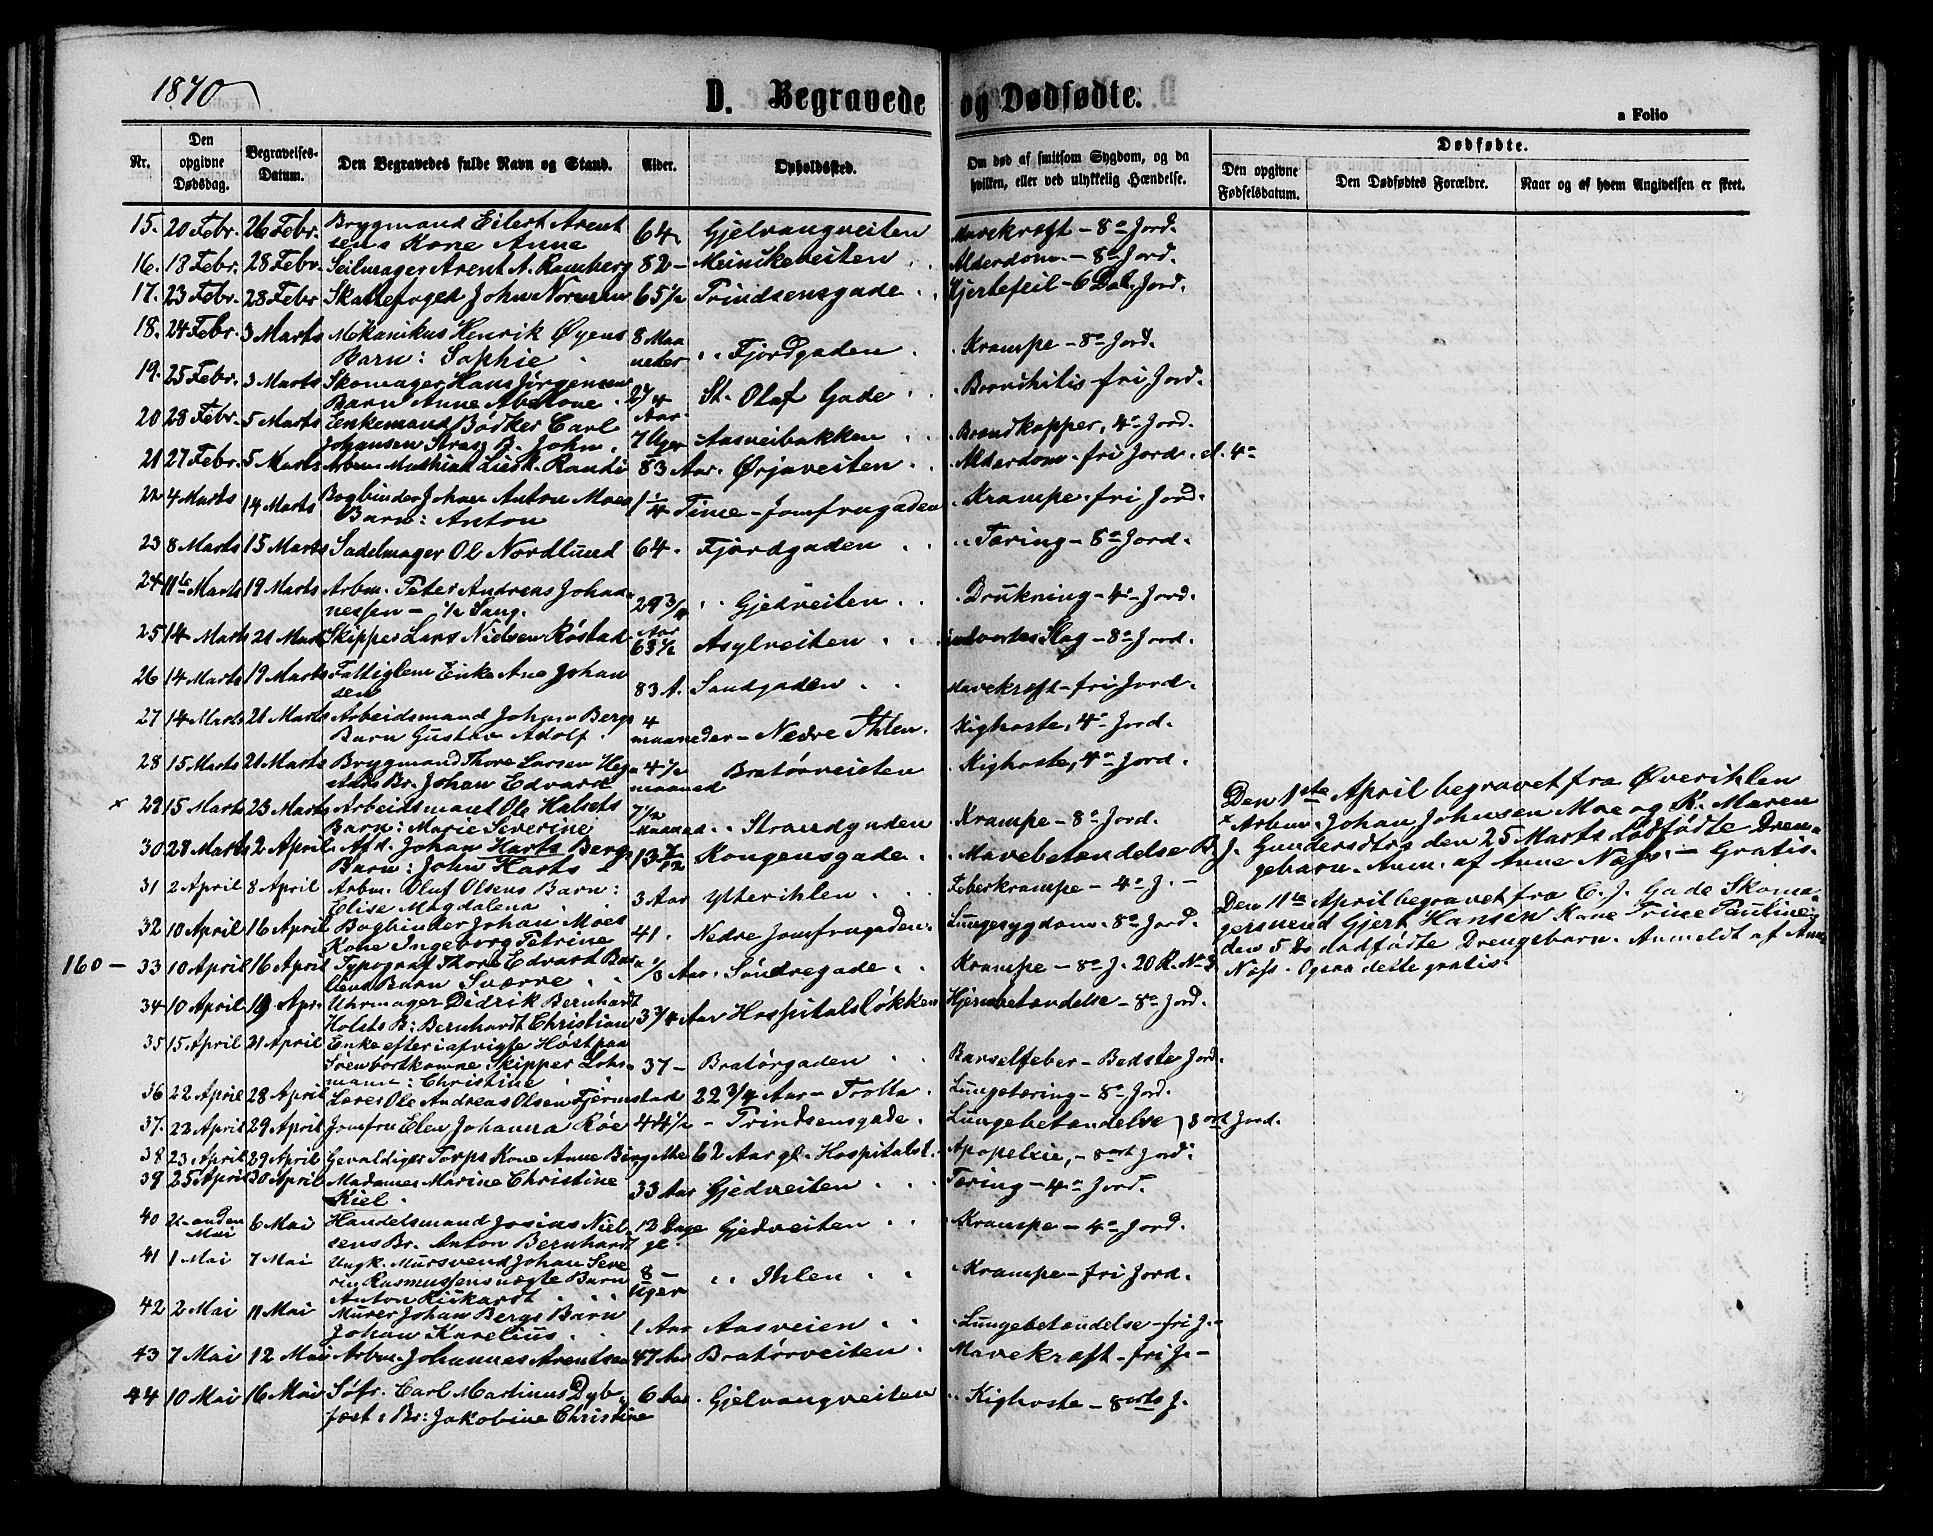 1870
D. Begravede og Dødfødte.
a Folio
Nr.
Den opgivne Dødsdag.
Begravelses-Datum.
Den Begravedes fulde Navn og Stand.
Alder.
Opholdssted.
Om død af smitsom Sygdom, og da hvilken, eller ved ulykkelig Hændelse.
Dødfødte.
Den opgivne Fødselsdatum.
Den Dødfødtes Forældre.
Naar og af hvem Angivelsen er skeet.
15. 20 Febr. 26 Febr. Brygmand Eilert Arent
sens Kone Anne 64. Gjelvangveiten Mavekræft - 8 o Jord.
16. 18 Febr. 28 Febr. Seilmager Arent A. Ramberg 82 - Meinckeveiten Alderdom. - 8 o Jord.
17. 23 Febr. 28 Febr Skattefoged John Norman 65 1/2 Prindsensgade Hjertefeil - 6 Dal. Jord.
18. 24 Febr. 3 Marts Mekanikus Henrik Øyens
Barn: Sophie 8 Maa neder Fjordgaden Krampe - 8 o Jord.
19. 25 Febr. 3 Marts Skomager Hans Jørgensen
Barn Anne Abelone 2 1/4 Aar St. Olaf Gade Bronchitis - fri Jord.
20 28 Febr. 5 Marts Enkemand Bødker Carl
Johansen B. John. 7 Uger Aasveibakken Brandkopper, 4 o Jord.
21 27 Febr. 5 Marts Arbm. Mathias Randi 83 Aar. Ørjaveiten Alderdom - fri Jord. 4 o
22 4 Marts 14 Marts Bogbinder Johan Anton Moes
Barn: Anton 1 1/4 Time - Jomfrugaden Krampe - fri Jord.
23 8 Marts 15 Marts Sadelmager Ol. Nordlund 64. Fjordgaden Tæring - 8 o Jord.
24 11te Marts 19 Marts Arbm. Peter Andreas Johan
nessen - 1/2 Sang. 29 3/4 Gjedveiten Drukning - 4 o Jord.
25 14 Marts 21 Marts Skipper Lars Nielsen Røstad Aar 63 1/2 Asylveiten indvortes Slag - 8 o Jord.
26 14 Marts 19 Marts Fattiglem Enke Ane Johan
sen 83 A. Sandgaden Mavekræft - fri Jord.
27 14 Marts 21 Marts Arbeidsmand Johan Bergs
Barn Gustav Adolf. 4 maaneder - Nedre Ihlen. Kighoste, 4 o Jord.
28 15 Marts 21 Marts Brygmand Thore Larsen Heg
stads Br. Johan Edvard 4 1/2 maaned Bratørveiten Kighoste, 4 o Jord.
x 29 15 Marts 23 Marts Arbeidsmand Ole Halsets
Barn: Marie Severine 7 1/2 Maaned Strandgaden Krampe - 8 o Jord.
30 28 Marts 2 April Afd. Johan Harts Bergs
Barn: John Harts 13 7/12 Kongensgade. Mavebetændelse
31 2 April 8 April Arbm. Oluf Olsens Barn:
Elise Magdalena 3 Aar Ytterihlen Feberkrampe - 4 o J. -
32 10 April 16 April Bogbinder Johan Moes
Kone Ingeborg Petrine 41. Nedre Jomfrugaden. Lungesygdom - 8 o Jord.
160 - 33 10 April 16 April Typograf Thore Edvard
Barn Sværre 1/3 Aar. Søndregade Krampe - 8 o J. 20 R. No 3
34 10 April 19 Apr. Uhrmager Didrik Bernhardt
Holsts B: Bernhardt Christian 3 3/4 Aar Hospitalsløkken Hjernebetændelse - 8 o Jord.
35 15 April 21 April Enke efter i afvigte Høst paa
Søen bortkomne Skipper Lohr
mann: Christine 37 - Bratørgaden Barselfeber - Bedste Jord.
36 22 April 28 April Lærer Ole Andreas Olsen Fjermestads 22 3/4 Aar - Trolla Lungetæring - 8 o Jord.
37. 22 April 29 April Jomfru Elen Johanna Røe 44 1/2 - Prindsensgade. Lungebetændelse, 8 ort Jord.
38 23 April 29 April Gevaldiger Torps Kone Anne Birgithe 62 Aar gl. Hospitalst. Apoplexie, - 8 ort Jord.
39 25 April 30 April Madame Marine Christine
Kiel. 33 Aar Gjedveiten Tæring - 4 o Jord.
40 2 anden Mai 6 Mai Handelsmand Josias Niel
sens Br. Anton Bernhardt 12 Dage Gjedveiten Krampe - 4 o Jord.
41 1 Mai 7 Mai Ungk. Mursvend Johan Seve
rin Rasmussens uægte Barn
Anton Rickardt 8 - Uger Ihlen Krampe - fri Jord.
42 2 Mai 11 Mai Murer Johan Bergs Barn
Johan Karelius 1 Aar Aasveien Lungebetændelse - fri J. -
43 7 Mai 12 Mai Arbm. Johannes Arentsen 47 Aar Bratørveiten Mavekræft - fri J. -
44 10 Mai 16 Mai Søfr. Carl Martinus Dyb
fæst: Br: Jakobine Christine 6 Aar Gjelvangveiten Kighoste - 8 orts J.
Den 1ste April begravet fra Øverihlen
x Arbm. Johan Johnsen Moe og K. Maren
J. Gundersdtrs den 25 Marts dødfødte Dren-
gebarn. Anm. af Anne Næss. - Gratis.
Den 11te April begravet fra C. J. Gade Skoma-
gersvend Gjert Hansen Kone Trine Pauline
den 5 Ds dødfødte Drengebarn. Anmeldt af Anne
Næss. Ogsaa dette gratis.